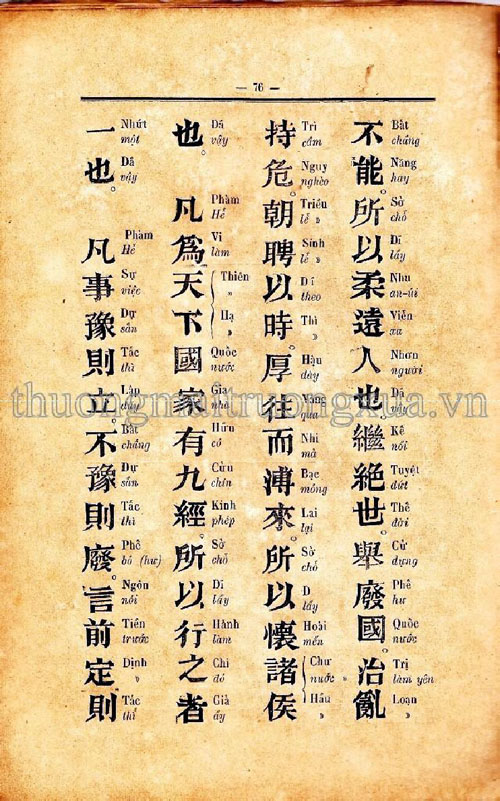 — 76 —
不能。所以柔遠人也繼絕世。舉廢國。治亂
Bất chẳng Năng hay Sở chỗ Dĩ lấy Nhu an-ủi Viễn xa Nhơn người Dã vậy Kế nối Tuyệt dứt Thế đời Cử dựng Phế hư Quốc nước Trị làm yên Loạn »
持危。朝聘以時。厚往而溥來。所以懷諸侯
Trì cầm Nguy nghèo Triều lễ » Sính lễ » Dĩ theo Thì » Hậu dày Vãng qua Nhi mà Bạc mỏng Lai lại Sở chỗ D lấy Hoài mến Chư nước » Hầu »
也。凡爲天下國家有九經。所以行之者
Dã vậy Phàm Hể Vi làm Thiên » Hạ » Quốc nước Gia nhà Hữu có Cửu chín Kinh phép Sở chỗ Dĩ lấy Hành làm Chi đó Giả ấy
一也。凡事豫則立。不豫則廢。言前定則
Nhứt một Dã vậy Phàm Hể Sự việc Dự sẳn Tắc thì Lập dậy Bất chẳng Dự sẳn Tắc thì Phế bỏ (hư) Ngôn nói Tiền trước Định » Tắc thì
thuongmaitruongxua.vn